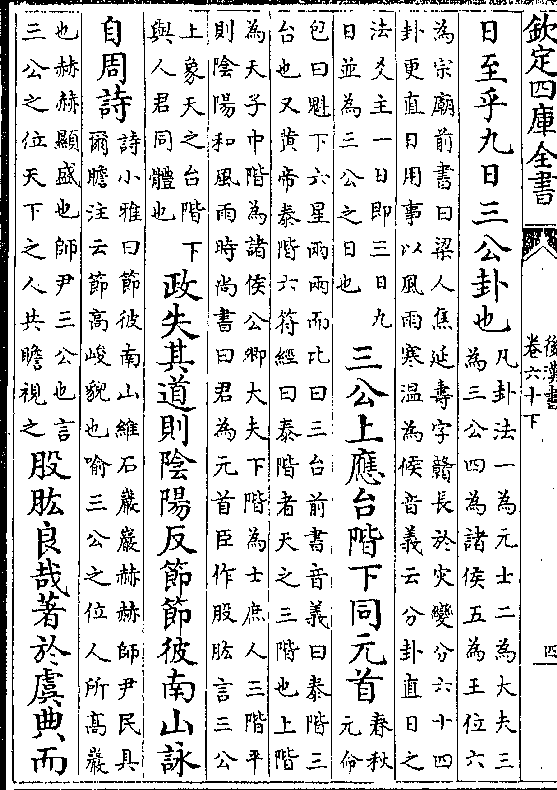 欽定四庫全書
後漢書
卷六十下
四
日至乎九日三公卦也
凡卦法一為元士二為大夫三
為三公四為諸侯五為王位六
為宗廟前書曰梁人焦延壽字贛長於災變分六十四
卦更直日用事以風雨寒溫為候音義云分卦直日之
法爻主一日即三日九
日並為三公之日也
三公上應台階下同元首
春秋
元命
包曰魁下六星兩兩而比曰三台前書音義曰泰階三
台也又黃帝泰階六符經曰泰階者天之三階也上階
為天子中階為諸侯公卿大夫下階為士庶人三階平
則陰陽和風雨時尚書曰君為元首臣作股肱言三公
上象天之台階下
與人君同體也
政失其道則陰陽反節節彼南山詠
自周詩
詩小雅曰節彼南山維石巖巖赫赫師尹民具
爾瞻注云節高峻貌也喻三公之位人所高巖
也赫赫顯盛也師尹三公也言
三公之位天下之人共瞻視之
股肱良哉著於虞典而